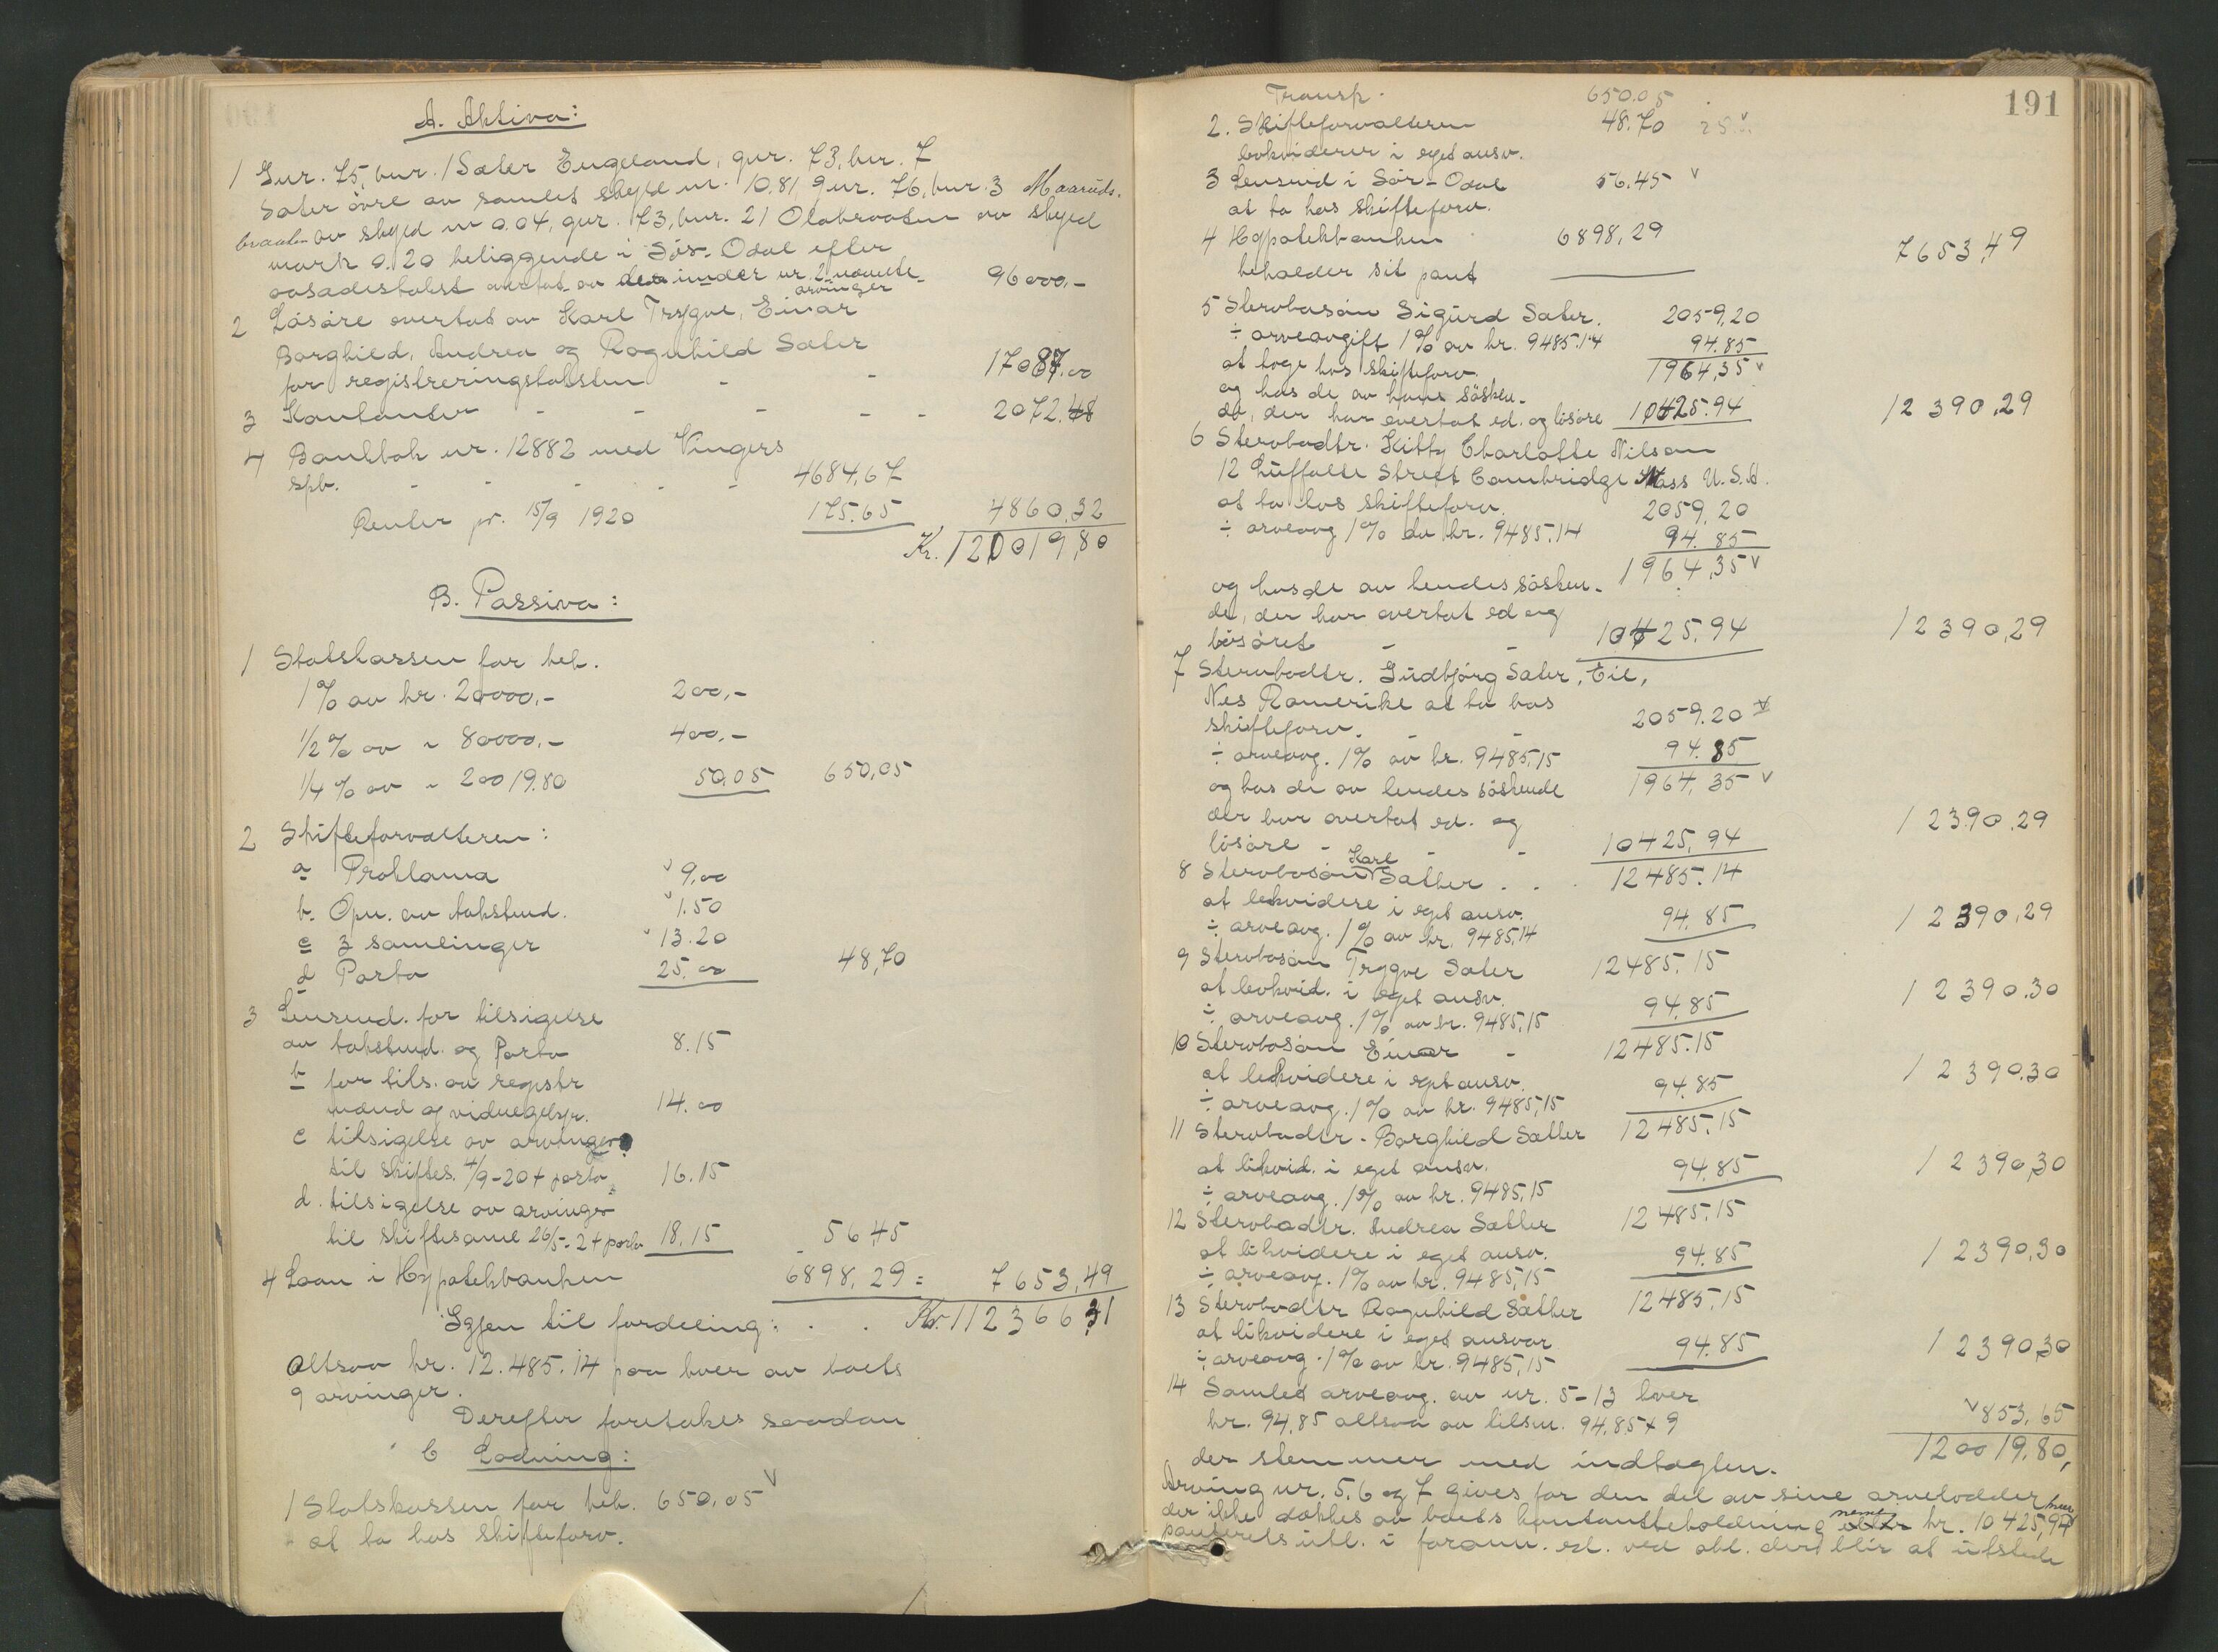 A. Aktiva:
1 Gnr. 75, bnr. 1 Sæter Engeland, gnr. 73, bnr. 7
Sæter övre av samlet skyld m. 10.81, gnr. 76, bnr. 3 Maaruds-
braaten av skyld m 0.04, gnr. 73, bnr. 21 Olabraaten av skyld
mark 0.20 beliggende i Sör-Odal efter
aasædestakst overtat av de under nr. 2 nævnte
arvinger 96000,-
2 Lösöre overtat av Karl Trygve, Einar
Borghild, Andrea og Ragnhild Sæter
for registreringstaksten - - 17087.00
3 Kontanter - - - - - 2072.48
4 Bankbok nr. 12882 med Vingers
spb. - - - - - 4684,67
Renter pr. 15/9 1920 175.65 4860,32
Kr. 120019,80
B. Passiva:
1 Statskassen for beh.
1% av kr. 20000,- 200,-
1/2 % av " 80000,- 400,-
1/4 % av " 20019.80 50,05 650,05
2 Skifteforvalteren:
a Proklama 9,00
b. Opn. av takstmd. 1.50
c 3 samlinger 13.20
d Porto 25.00 48,70
3 Lensmd. for tilsigelse
av takstmd. og Porto 8.15
b for tils. av registr
mænd og vidnegodtgj. 14.00
c tilsigelse av arvinger
til skiftes. 4/9-20 + porto 16.15
d. tilsigelse av arvinger
til skiftesaml 26/5-2 + porto 18.15 56,45
4 Laan i Hypotekbanken 6898,29 = 7653,49
Igjen til fordeling: . . Kr. 112366,31
altsaa kr. 12.485.14 paa hver av boets
9 arvinger.
Derefter foretakes saadan
C Lodning:
1 Statskassen for beh. 650,05 v
at ta hos skifteforv.
191
Transp. 650.05
2. Skifteforvalteren 48.70
likviderer i eget ansv.
3 Lensmd i Sör-Odal 56.45 v
at ta hos skifteforv.
4 Hypotekbanken 6898,29 7653,49
beholder sit pant
5 Stervbosön Sigurd Sæter. 2059,20
÷ arveavgift 1% av kr. 9485.14 94.85
at tage hos skifteforv. 1964,35 v
og hos de av hans sösken-
de, der har overtat ed. og lösöre 10425.94 12390,29
6 Stervbodtr. Kitty Charlotte Nilson
12 Street Cambridge Mass U.S.A.
at ta hos skifteforv. 2059,20
÷ arveavg 1% av kr. 9485.14 94.85
1964,35 v
og hos de av hendes sösken-
de, der har overtat ed og
lösöret - - 10425.94 12390,29
7 Stervbodtr. Gudbjörg Sæter,
Nes Romerike at ta hos
skifteforv. - - 2059.20
÷ arveavg. 1% av kr. 9485,15 94.85
og hos de av hendes söskende 1964,35 v
der har overtat ed. og
lösöre - - - 10425,94 12390,29
8 Stervbosön Karl Sæther . . . 12485.14
at likvidere i eget ansv.
÷ arveavg. 1% av kr. 9485,14 94.85 12390,29
9 Stervbosön Trygve Sæter 12485,15
at likvid. i eget ansv.
÷ arveavg. 1% av kr. 9485,15 94.85 12390.30
10 Stervbosön Einar - 12485.15
at likvidere i eget ansv.
÷ arveavg. 1% av kr. 9485,15 94.85 12390.30
11 Stervbodtr. Borghild Sæther 12485,15
at likvid. i eget ansv.
÷ arveavg. 1% av kr. 9485,15 94.85 12390,30
12 Stervbodtr. Andrea Sæther 12485,15
at likvidere i eget ansv.
÷ arveavg. 1% av kr. 9485,15 94.85 12390,30
13 Stervbodtr Ragnhild Sæther 12485,15
at likvidere i eget ansvar
÷ arveavg. 1% av kr. 9485,15 94.85 12390,30
14 Samlet arveavg. av nr. 5-13 hver
kr. 94,85 altsaa av tilsm. 94.85 + 9 853,65
der stemmer med indtægten. 120019.80,
Arving nr. 5, 6 og 7 gives for den del av sine arvelodder
der ikke dækkes av boets kontantbeholdning nemlig kr. 10425,94
panterets utl. i forann. ed. ved obl. der blir at utstede